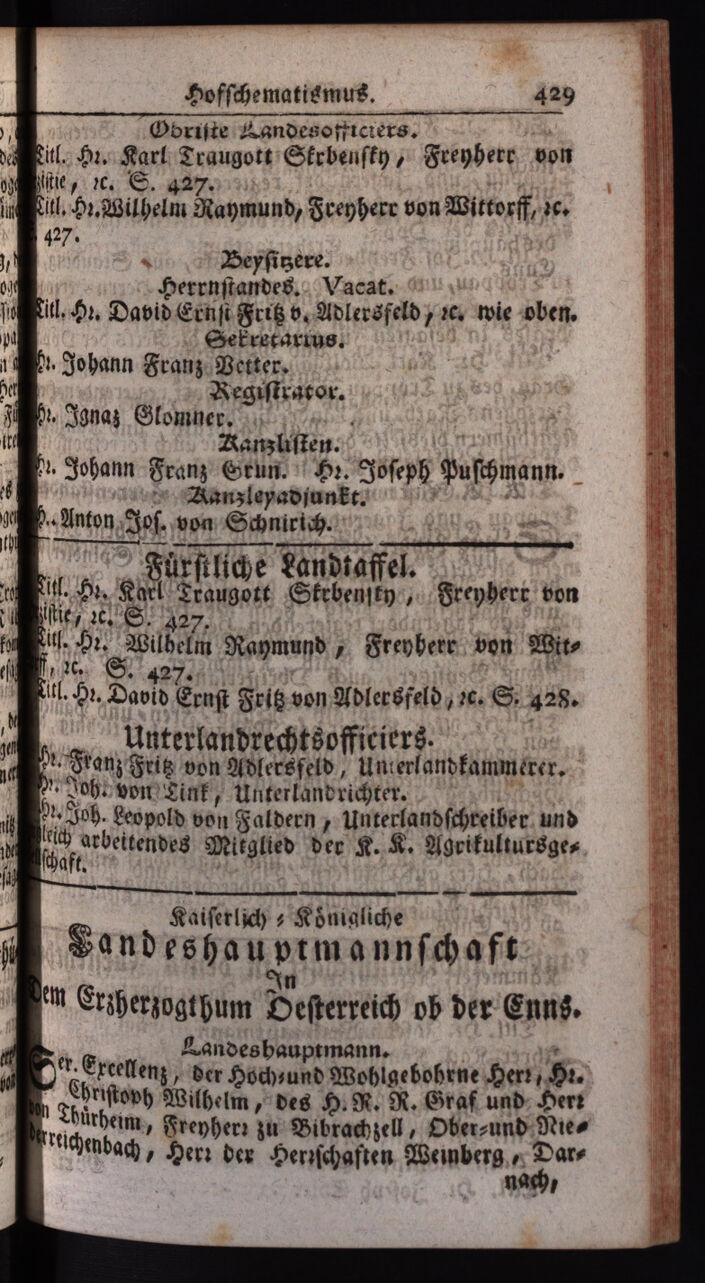 Hofschematismus. 429
Obriste Landesofficiers.
Titl. Hr. Karl Traugott Skrbensky, Freyherr von
zistie, ꝛc. S. 427.
Titl. Hr. Wilhelm Raymund, Freyherr von Wittorff, ꝛc.
427.
Beysitzere.
Herrnstandes. Vacat.
Titl. Hr. David Ernst Fritz v. Adlersfeld, ꝛc. wie oben.
Sekretarius.
Hr. Johann Franz Vetter.
Registrator.
Hr. Ignaz Glomner.
Kanzlisten.
Hr. Johann Franz Grun. Hr. Joseph Puschmann.
Kanzleyadjunkt.
H. Anton Jos. von Schnirich.
Fürstliche Landtaffel.
Titl. Hr. Karl Traugott Skrbensky, Freyherr von
zistie, ꝛc. S. 427.
Titl. Hr. Wilhelm Raymund, Freyherr von Wit-
ff, ꝛc. S. 427.
Titl. Hr. David Ernst Fritz von Adlersfeld, ꝛc. S. 428.
Unterlandrechtsofficiers.
Hr. Franz Fritz von Adlersfeld, Unterlandkammerer.
Hr. Joh. von Tink, Unterlandrichter.
Hr. Joh. Leopold von Faldern, Unterlandschreiber und
gleich arbeitendes Mitglied der K. K. Agrikultursge-
schaft.
Kaiserlich-Königliche
Landeshauptmannschaft
In
Dem Erzherzogthum Oesterreich ob der Enns.
Landeshauptmann.
Ser. Excellenz, der Hoch-und Wohlgebohrne Herr, Hr.
Christoph Wilhelm, des H. R. R. Graf und Herr
von Thürheim, Freyherr zu Bibrachzell, Ober-und Nie-
derreichenbach, Herr der Herrschaften Weinberg, Dar-
nach,